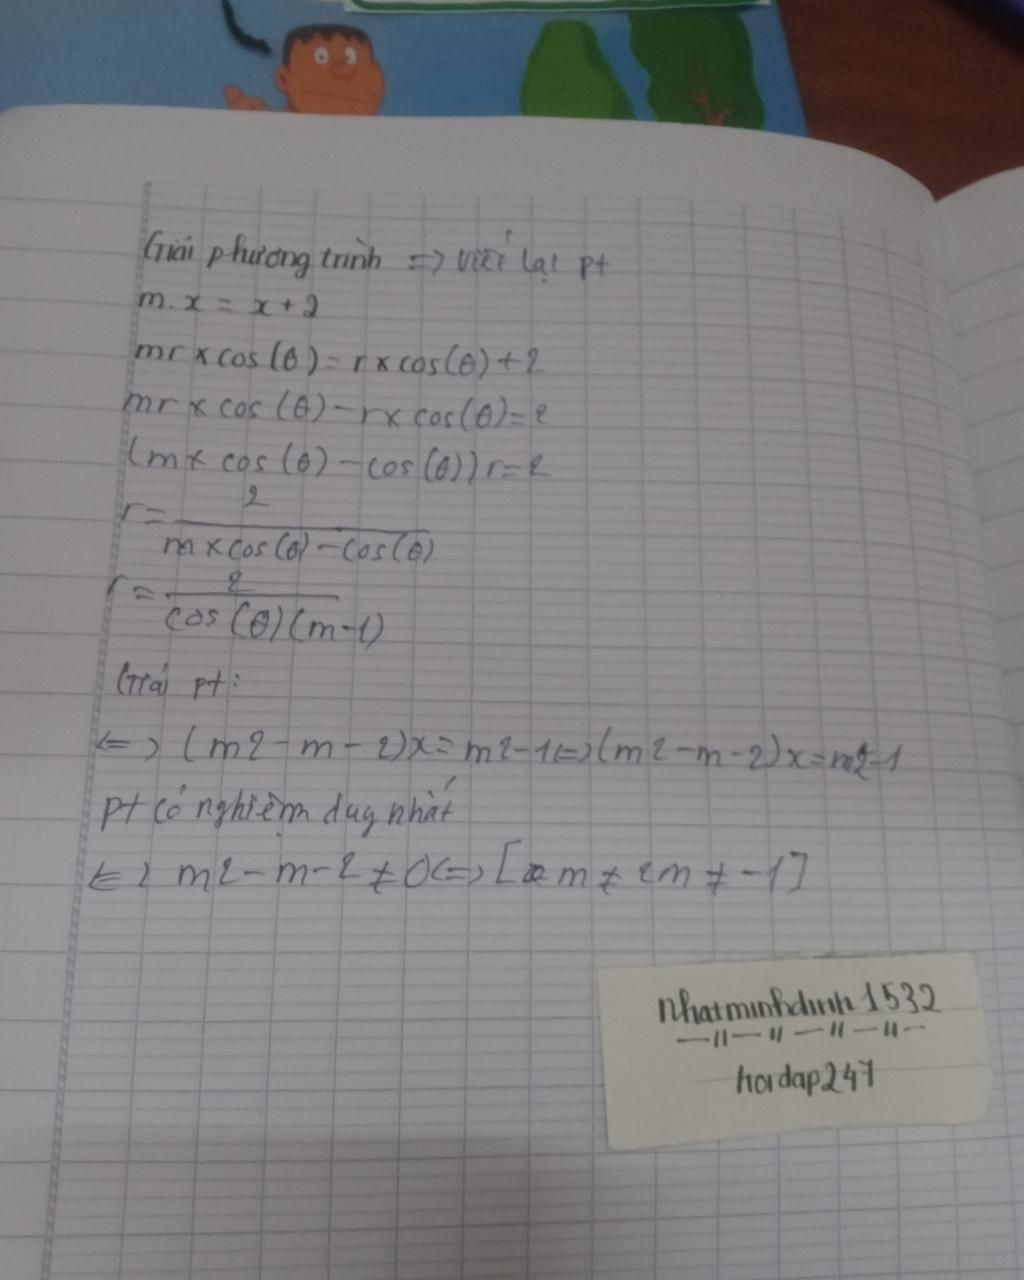 Giải phương trình => viết lại pt
m. x = x + 2
mr x cos (θ) = r x cos(θ) + 2
mr x cos (θ) - r x cos(θ) = 2
(m x cos (θ) - cos (θ)) r = 2
r = 2 / m x cos (θ) - cos(θ)
r = 2 / cos (θ) (m - 1)
Giải pt:
<=> (m2 - m - 2)x = m2 - 1 <=> (m2 - m - 2)x = m2 - 1
pt có nghiệm duy nhất
<=> m2 - m - 2 ≠ 0 <=> [ m ≠ 2m ≠ -1 ]
nhatminhdinh1532
— 11 — 11 — 11 — 11 —
hoidap247